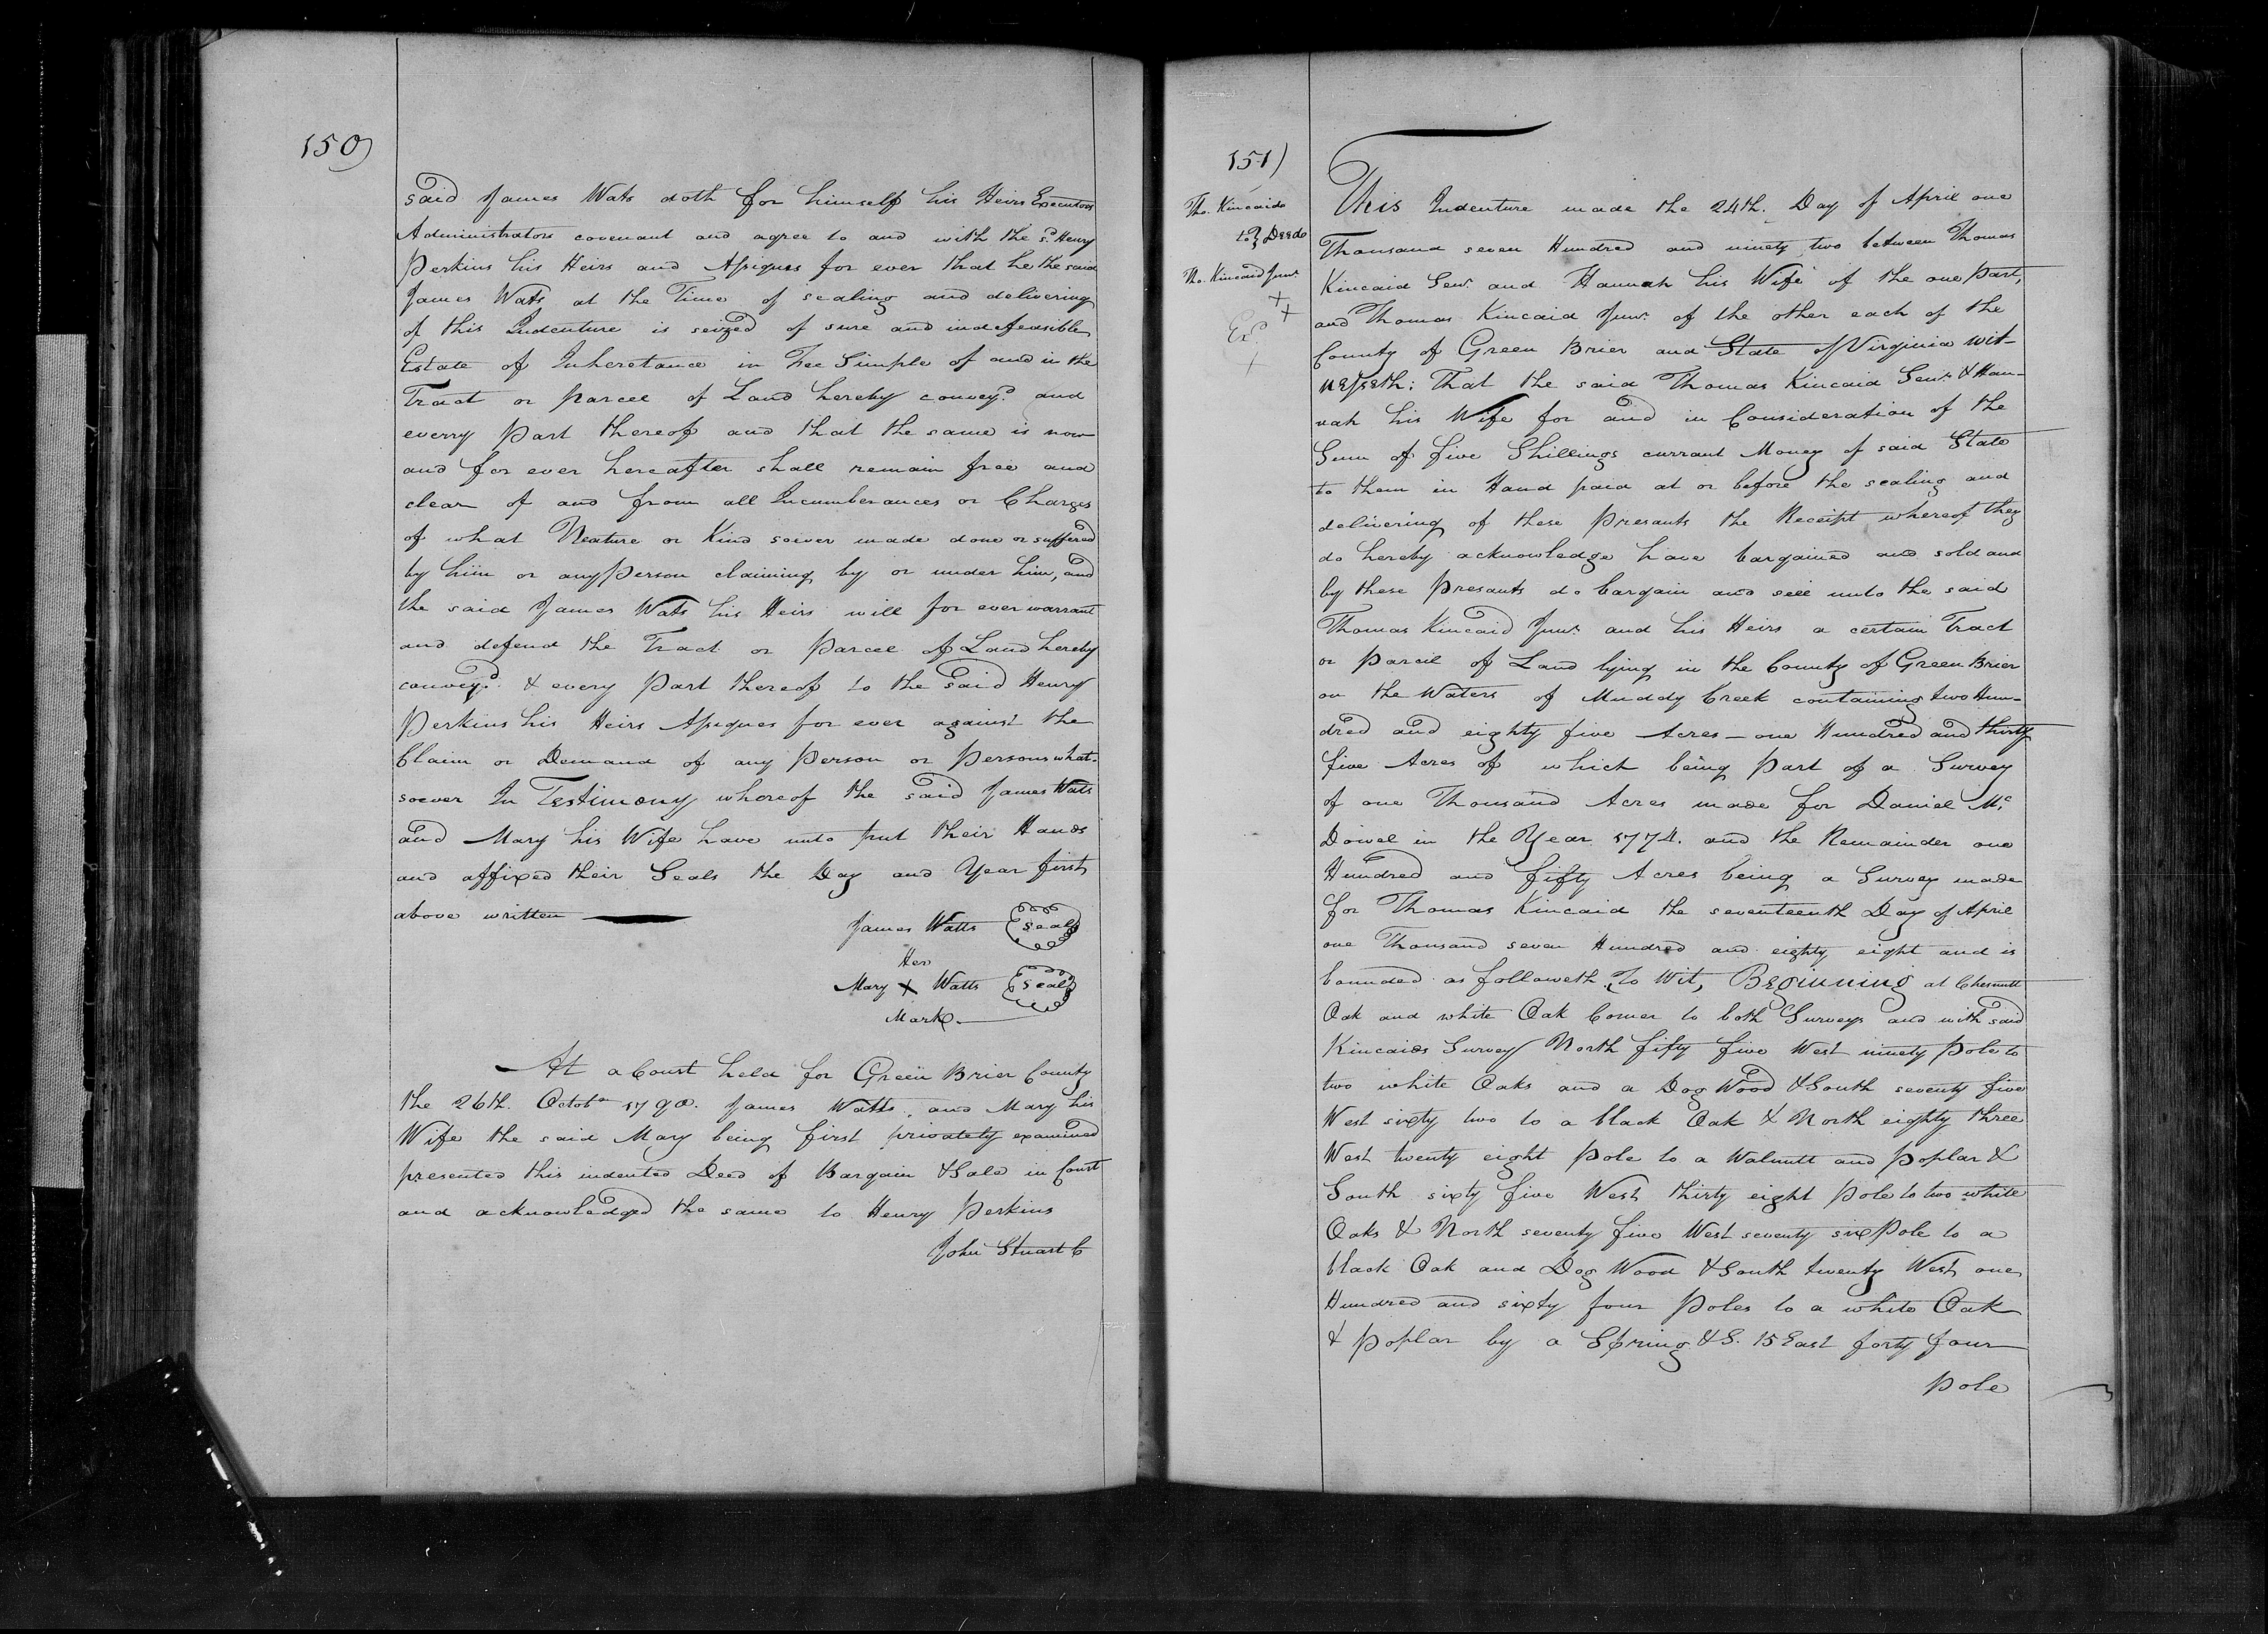 150)
said James Wats doth for himself his Heirs Executors
Administrators covenant and agree to and with the sd. Henry
Perkins his Heirs and Assigns for ever that he the said
James Wats at the Time of sealing and delivering
of this Indenture is seized of sure and indefeasible
Estate of Inheretance in Fee Simple of and in the
Tract or parcel of Land hereby convey'd and
everry part thereof and that the same is now
and for ever hereafter shall remain free and
clear of and from all Incumberances or Charges
of what Neature or Kind soever made done or suffered
by him or any Person claiming by or under him, and
the said James Wats his Heirs will for ever warrant
and defend the Tract or Parcel of Land hereby
convey'd & every Part thereof to the said Henry
Perkins his Heirs Assignes for ever against the
Claim or Demand of any Person or Persons what-
soever In Testimony whereof the said James Wats
and Mary his Wife have unto put their Hands
and affixed their Seals the Day and Year first
above written
James Watts Seal
Her
Mary X Watts Seal
Mark
At a Court held for Green Brier County
the 26th. Octobr 1790. James Watts and Mary his
Wife the said Mary being first privately examined
presented this indented Deed of Bargain & Sale in Court
and acknowledged the same to Henry Perkins
John Stuart C
151)
Tho. Kincaid
to } Deed
Tho. Kincaid Junr.
Ex.
This Indenture made the 24th. Day of April one
Thousand seven Hundred and ninety two between Thomas
Kincaid Senr. and Hannah his Wife of the one Part,
and Thomas Kincaid Junr. of the other each of the
County of Green Brier and State of Virginia wit-
nesseth: That the said Thomas Kincaid Senr. & Han-
nah his Wife for and in Consideration of the
Sum of five Shillings currant Money of said State
to them in Hand paid at or before the sealing and
delivering of these Presants the Receipt whereof they
do hereby acknowledge have bargained and sold and
by these Presants do bargain and sell unto the said
Thomas Kincaid Junr. and his Heirs a certain Tract
or Parcil of Land lying in the County of Green Brier
on the Waters of Muddy Creek containing two Hun-
dred and eighty five Acres - one Hundred and thirty
five Acres of which being Part of a Survey
of one Thousand Acres made for Daniel Mc.
Dowel in the Year 1774. and the Remainder one
Hundred and fifty Acres being a Survey made
for Thomas Kincaid the seventeenth Day of April
one Thousand seven Hundred and eighty eight and is
bounded as followeth, to Wit, Beginning at Chesnutt
Oak and white Oak Corner to both Surveys and with said
Kincaids Survey North fifty five West ninety Pole to
two white Oaks and a Dog Wood & South seventy five
West sixty two to a black Oak & North eighty three
West twenty eight Pole to a Walnutt and Poplar &
South sixty five West thirty eight Pole to two white
Oaks & North seventy five West seventy six Pole to a
black Oak and Dog Wood & South twenty West one
Hundred and sixty four Poles to a white Oak
& Poplar by a Spring & S. 15 East forty four
Pole